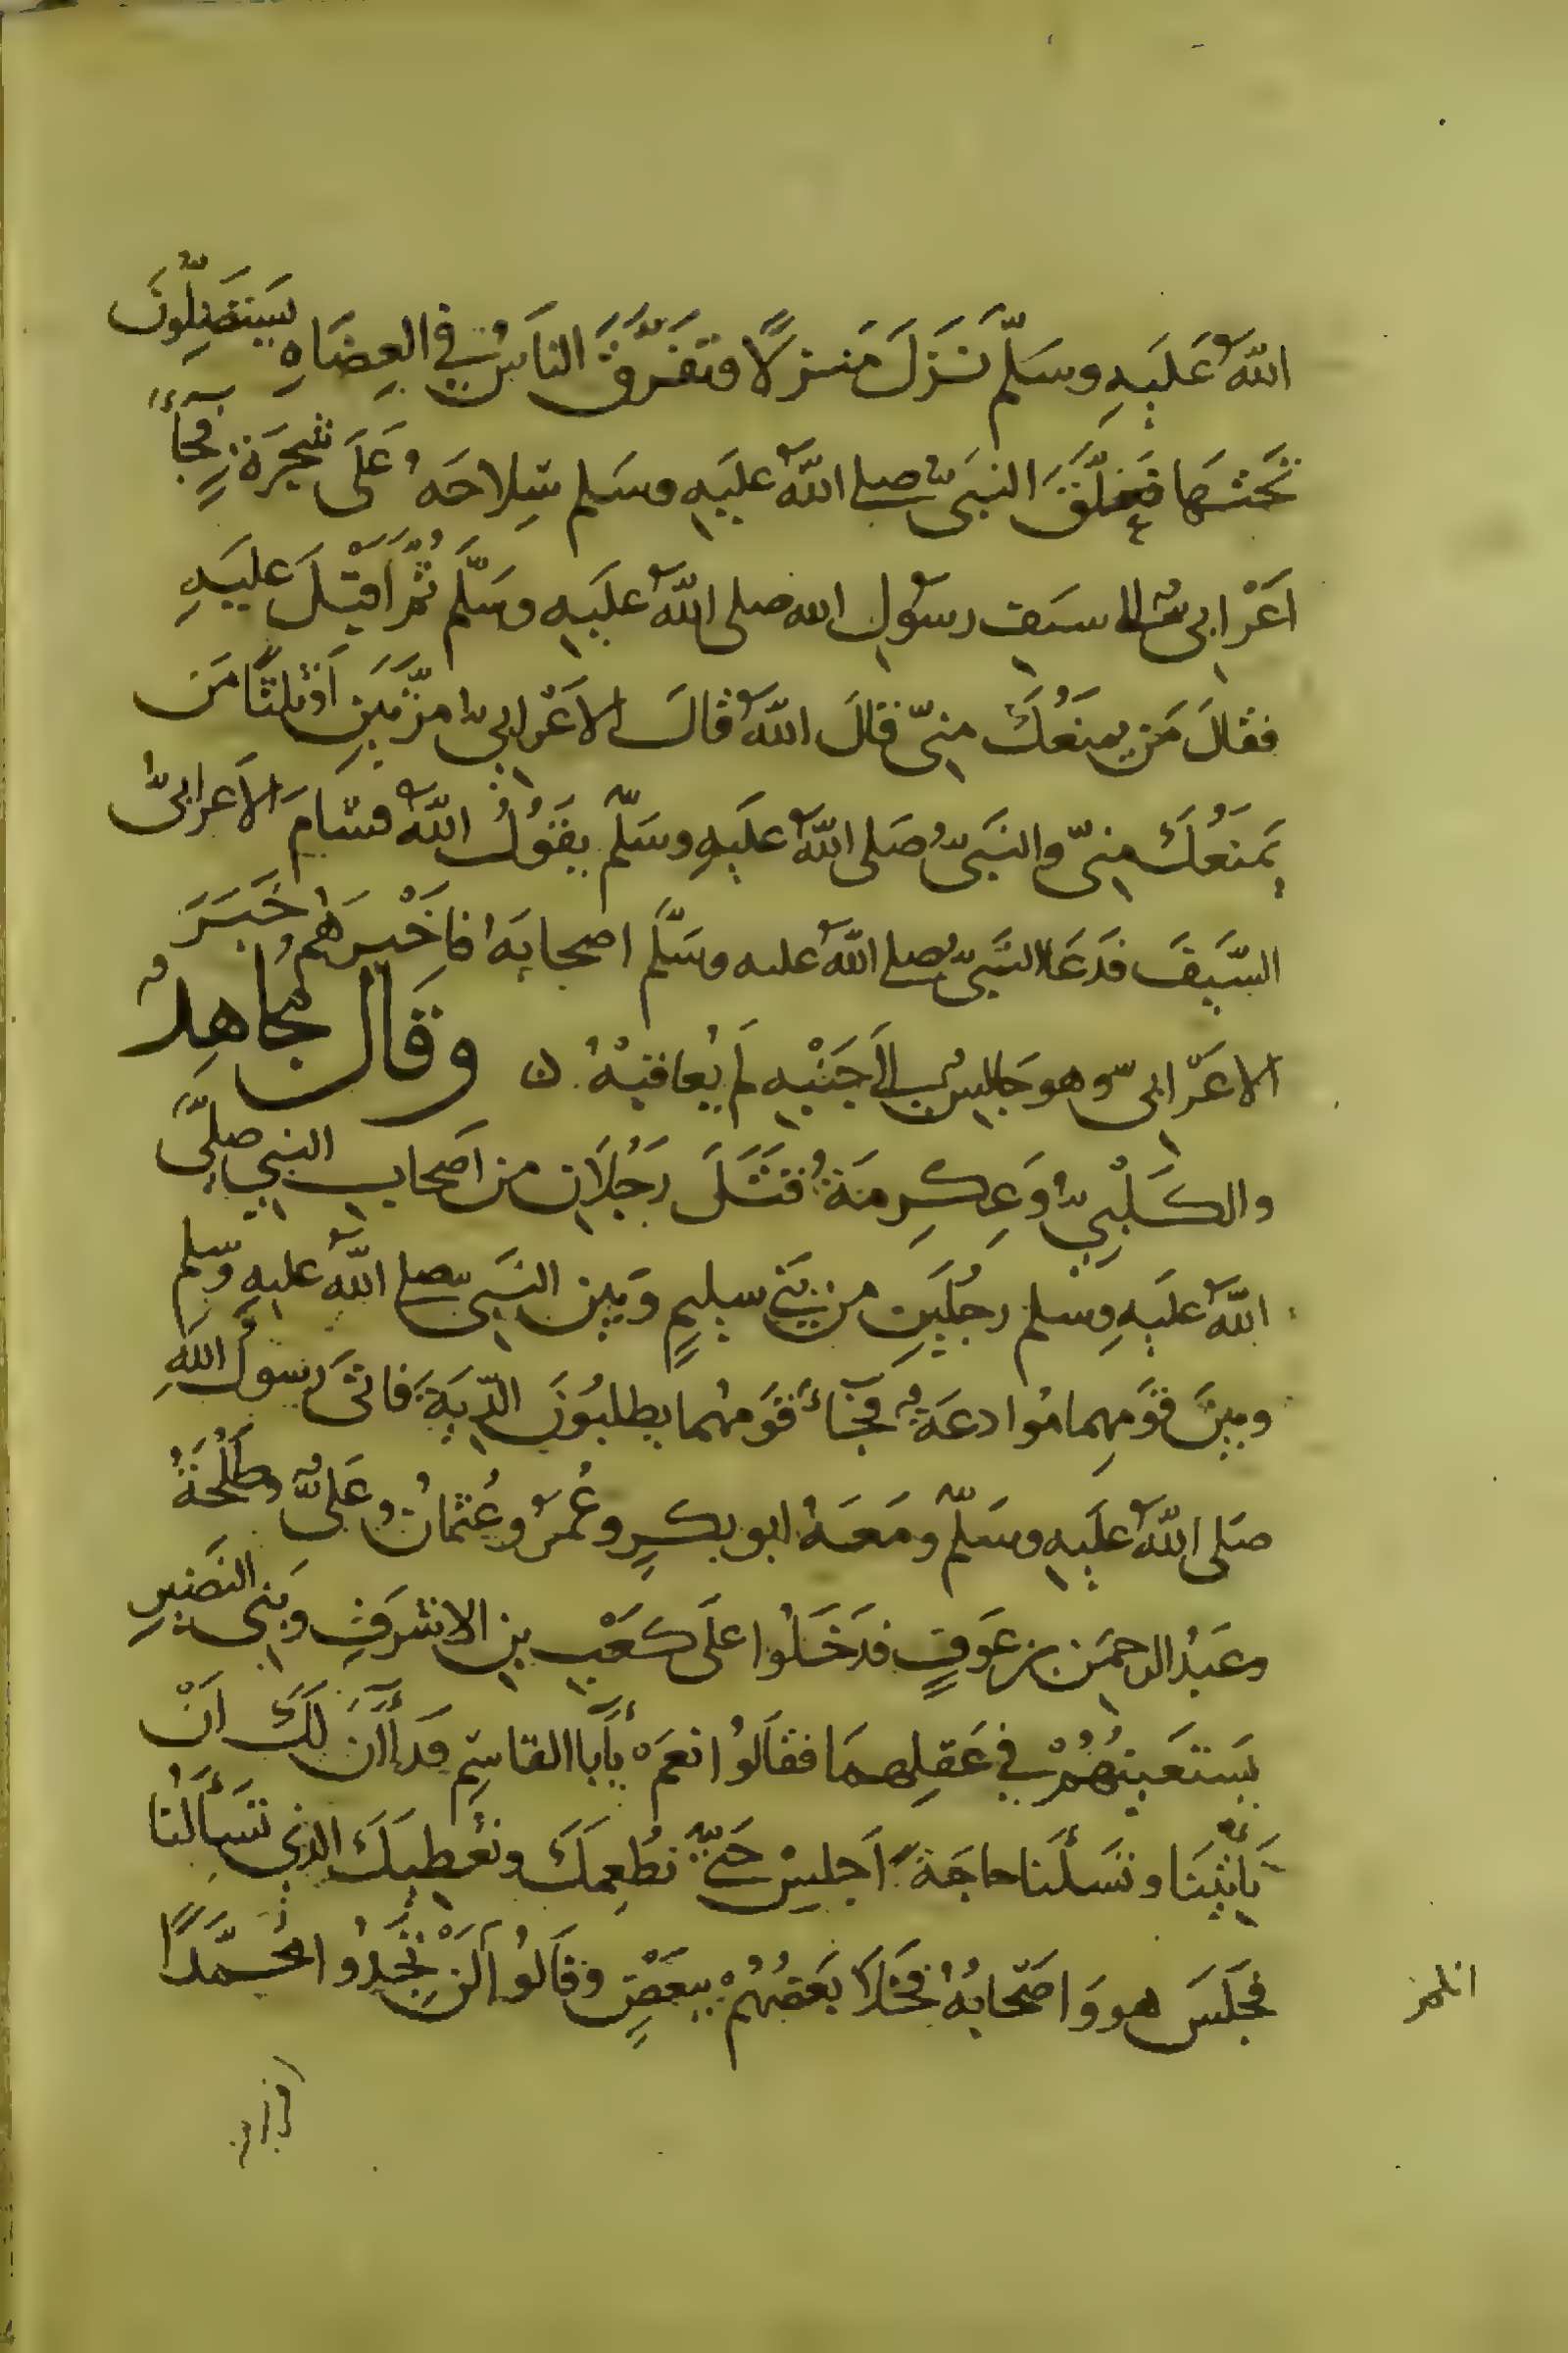 اللَّهُ عَلَيهِ وسَلّم نَزَلَ مَنزلًا فتَفَرَّقَ الناسُ في العِضَاهِ يَستَظِلُّونَ
تَحتَهَا فَعَلَّقَ النبَىُّ صلى اللَّهُ عليَهِ وسَلم سِلاحَهُ عَلَى شَجَرَةٍ فجآءَ
اعَرابىٌّ الى سَيفِ رسُولِ الله صلى اللَّهُ علَيهِ وسَلَّم ثُمَّ اَقبَلَ عليَهِ
فقالَ مَن يمنَعُكَ مِنىّ قالَ اللَّهُ قالَ الاَعَرابىُّ مرَّتَينِ اَوثلثًا مَن
يَمنَعُكَ مِنىّ والنبَىُّ صَلى اللَّهُ علَيهِ وسَلّم يقَوُلُ اللَّهُ فشَامَ الاَعرابىُّ
السَّيفَ فدَعَا النبَىُّ صلى اللَّهُ عليه وسَلَّم اصحابَهُ فاَخَبرَهُم خَبَرَ
الاعَرابىّ وهو جَالِسٌ الَى جَنْبِهِ لَم يُعاقبْهُ ۞ وقَال مُجاهِدٌ
والكَلْبِيُّ وَعِكرِمَةُ قتَلَ رَجُلاَنِ من اَصحابِ النبي صلَّى
اللَّهُ علَيهِ وسلم رجُلَينِ من بَنىِ سليمٍ وبَين النبَىّ صلى اللَّهُ عليهِ وسلم
وبينَ قَومِهِما مُوادعَةٌ فجآءَ قَومُهُما يطلبُونَ الدِّيَةَ فاتىَ رسُولُ اللهِ
صَلى اللَّهُ علَيهِ وسَلّم ومَعَهُ ابو بكرٍ وعُمَرُ وعُثمانُ وعَلىٌّ وطَلْحَةُ
وعَبدُ الرحمَنِ بن عَوفٍ فدَخَلُوا علَى كَعَبِ بنِ الاشَرفِ وبَني النضَيرِ
يَستَعَينُهُمْ في عَقلِهمَا فقالَوُا نعَمَ يآَبا القاسِمِ قَد آَنَ لَكَ اَنْ
تَأتِيَنَا وتَسئَلَنا حاجَةً اَجلِسْ حَتّىَ نُطعِمَكَ ونُعطيَكَ الذي تَسأَلُنا
فجَلسَ هو وَاصَحابُهُ فخَلاَ بَعضُهُمْ ببعَضٍ وقالَوُا لَنْ تَجِدُوا محُمَّدًا